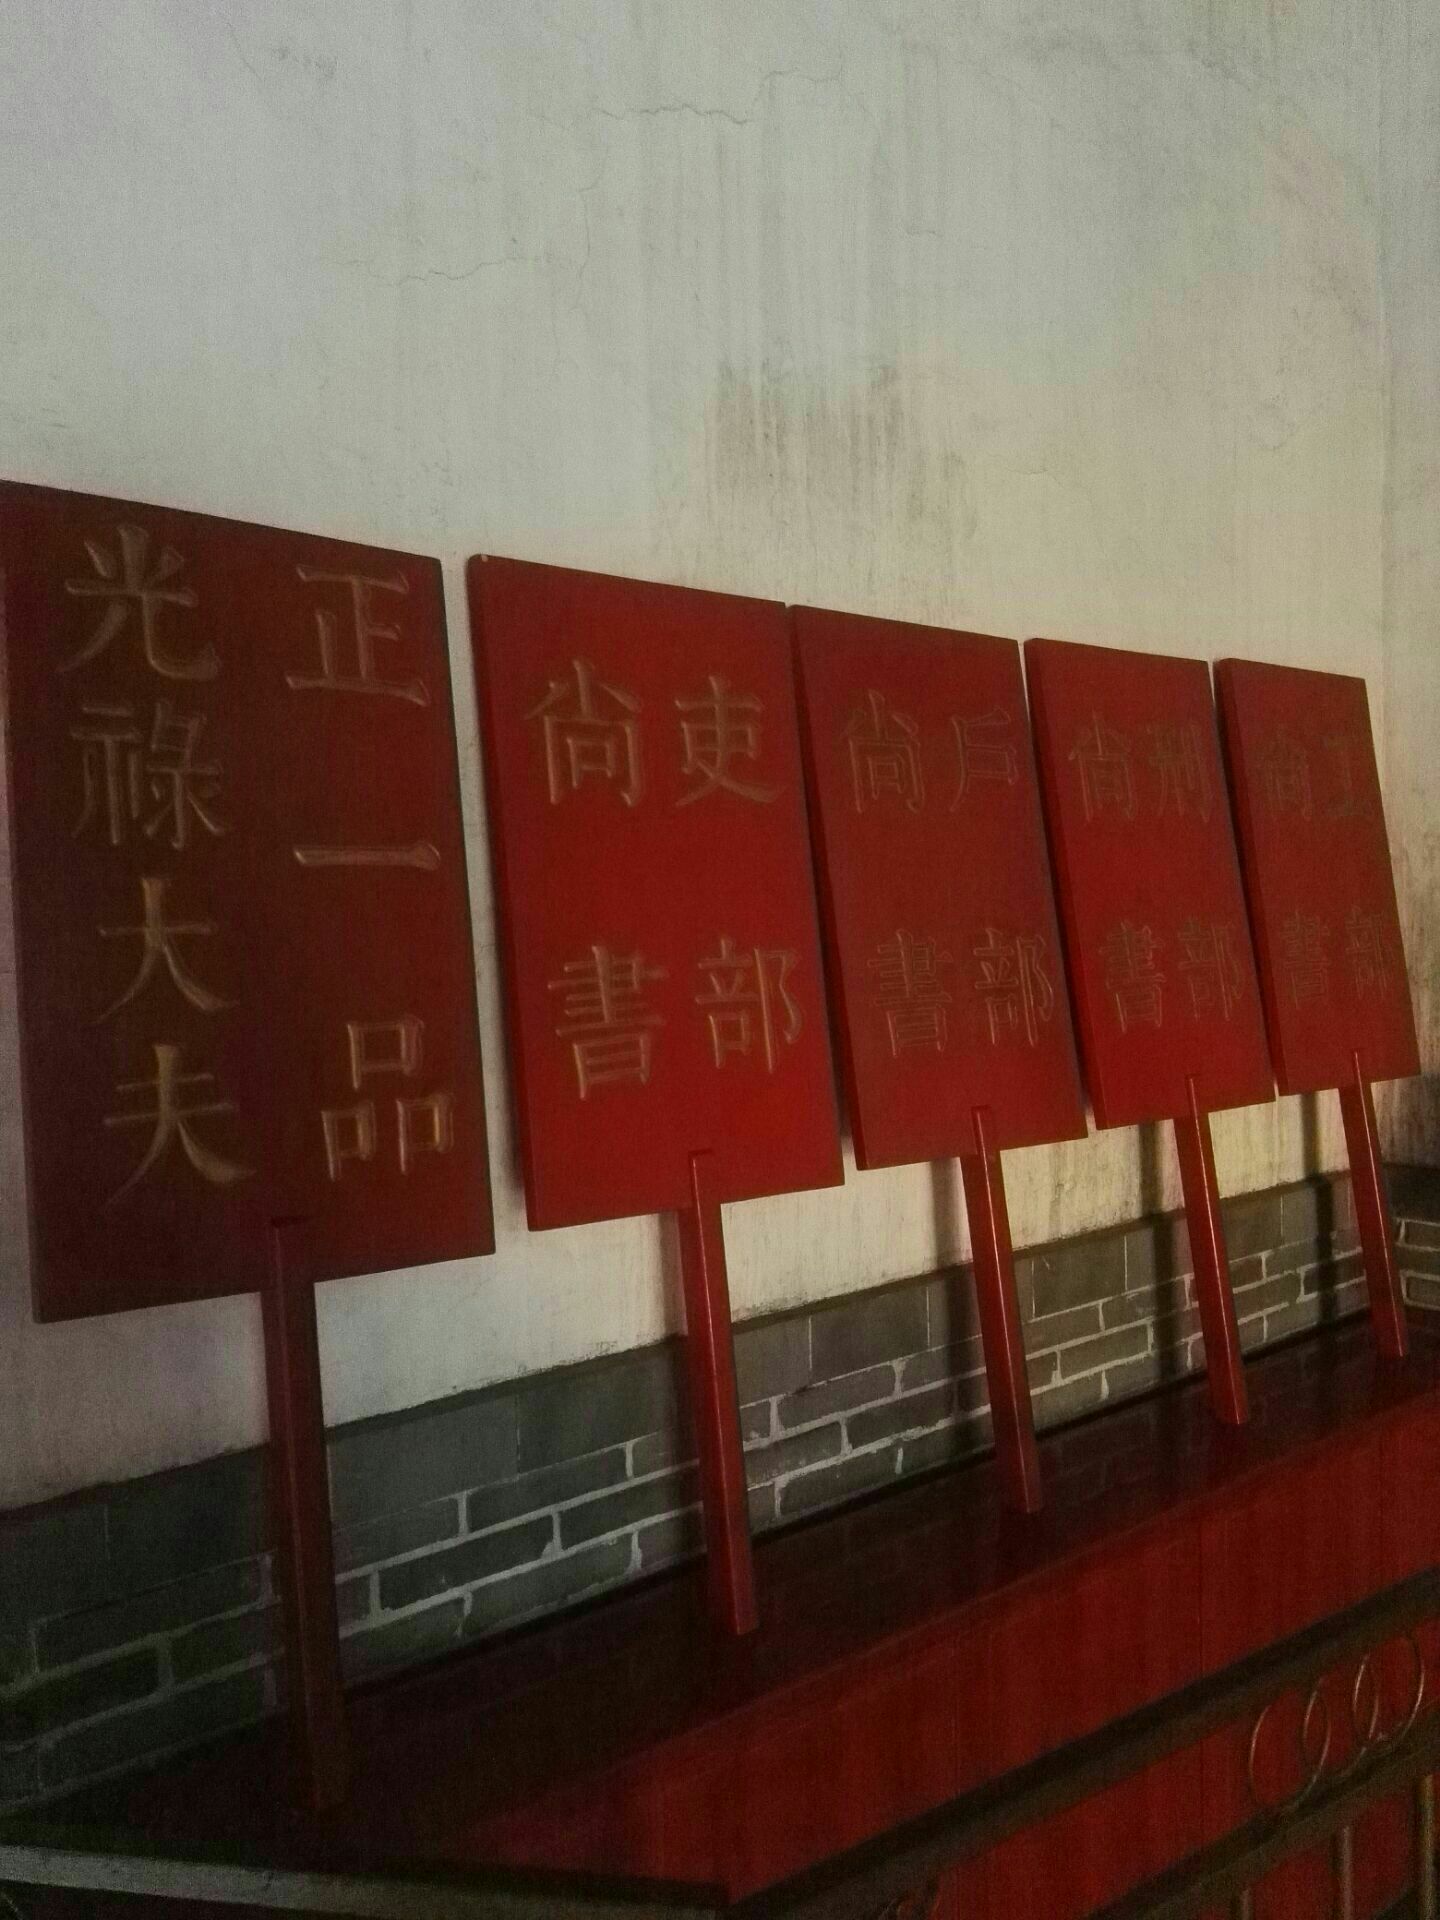 正一品
光祿大夫
吏部
尚書
戶部
尚書
刑部
尚書
工部
尚書